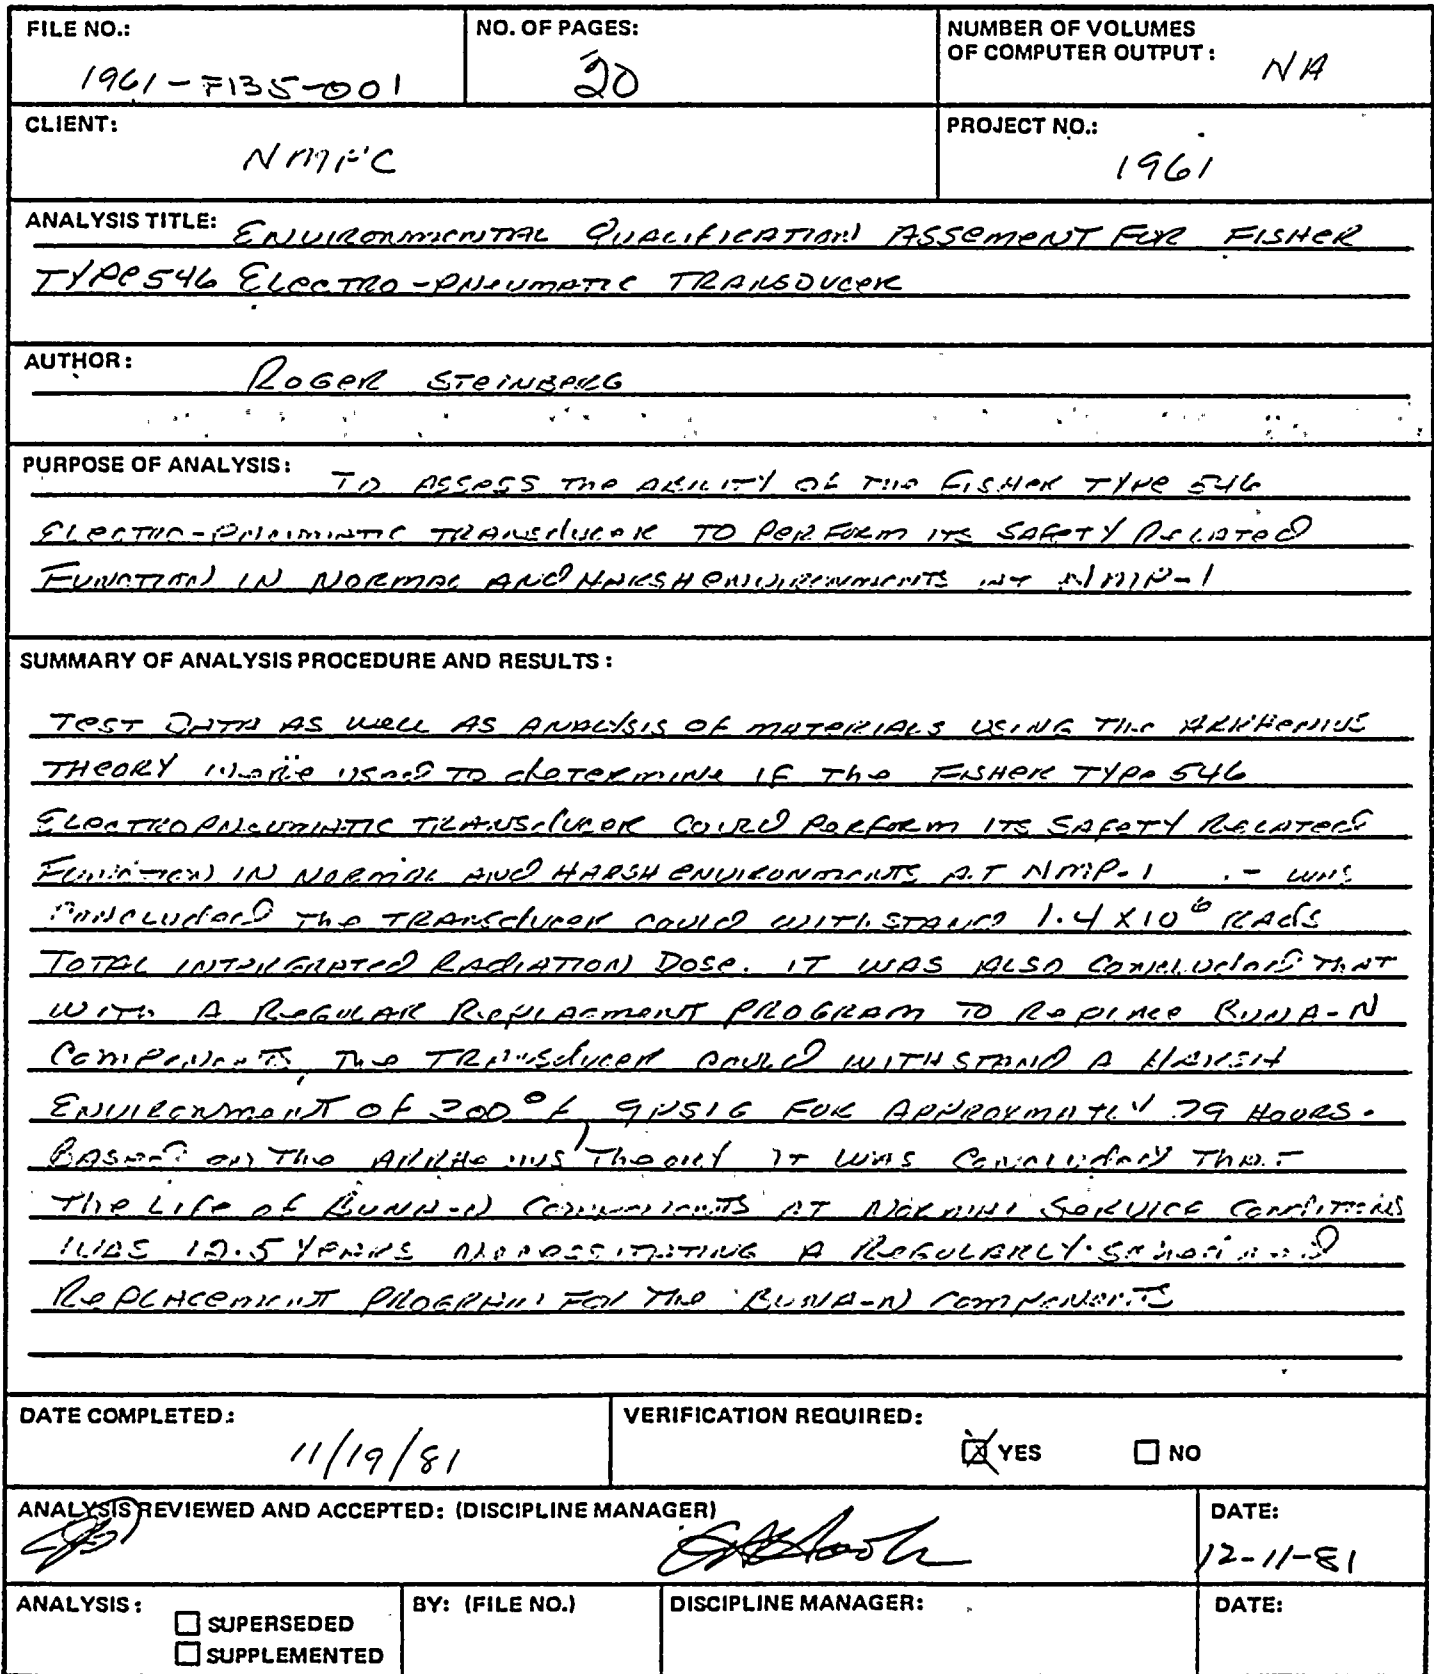 FILE NO.:
1961-F135-001
NO. OF PAGES:
20
NUMBER OF VOLUMES
OF COMPUTER OUTPUT:
NA
CLIENT:
NMPC
PROJECT NO.:
1961
ANALYSIS TITLE: ENVIRONMENTAL QUALIFICATION ASSEMENT FOR FISHER
TYPE 546 ELECTRO-PNEUMATIC TRANSDUCER
AUTHOR:
ROGER STEINBERG
PURPOSE OF ANALYSIS:
TO ASSESS THE ABILITY OF THE FISHER TYPE 546
ELECTRO-PNEUMATIC TRANSDUCER TO PERFORM ITS SAFETY RELATED
FUNCTION IN NORMAL AND HARSH ENVIRONMENTS AT NMP-1
SUMMARY OF ANALYSIS PROCEDURE AND RESULTS:
TEST DATA AS WELL AS ANALYSIS OF MATERIALS USING THE ARRHENIUS
THEORY WERE USED TO DETERMINE IF THE FISHER TYPE 546
ELECTROPNEUMATIC TRANSDUCER COULD PERFORM ITS SAFETY RELATED
FUNCTION IN NORMAL AND HARSH ENVIRONMENTS AT NMP-1 WAS
CONCLUDED THE TRANSDUCER COULD WITHSTAND 1.4 X 10^6 RADS
TOTAL INTERGRATED RADIATION DOSE. IT WAS ALSO CONCLUDED THAT
WITH A REGULAR REPLACMENT PROGRAM TO REPLACE BUNA-N
COMPONENTS, THE TRANSDUCER COULD WITHSTAND A HARSH
ENVIRONMENT OF °F, 9 PSIG FOR APPROXMATLY HOURS.
BASED ON THE ARRHENIUS THEORY IT WAS CONCLUDED THAT
THE LIFE OF BUNA-N COMPONENTS AT NORMAL SERVICE CONDITIONS
WAS 12.5 YEARS NECESSITATING A REGULARLY SCHEDULED
REPLACEMENT PROGRAM FOR THE BUNA-N COMPONENTS
DATE COMPLETED:
11/19/81
VERIFICATION REQUIRED:
YES
NO
ANALYSIS REVIEWED AND ACCEPTED: (DISCIPLINE MANAGER)
DATE:
12-11-81
ANALYSIS:
SUPERSEDED
SUPPLEMENTED
BY: (FILE NO.)
DISCIPLINE MANAGER:
DATE: